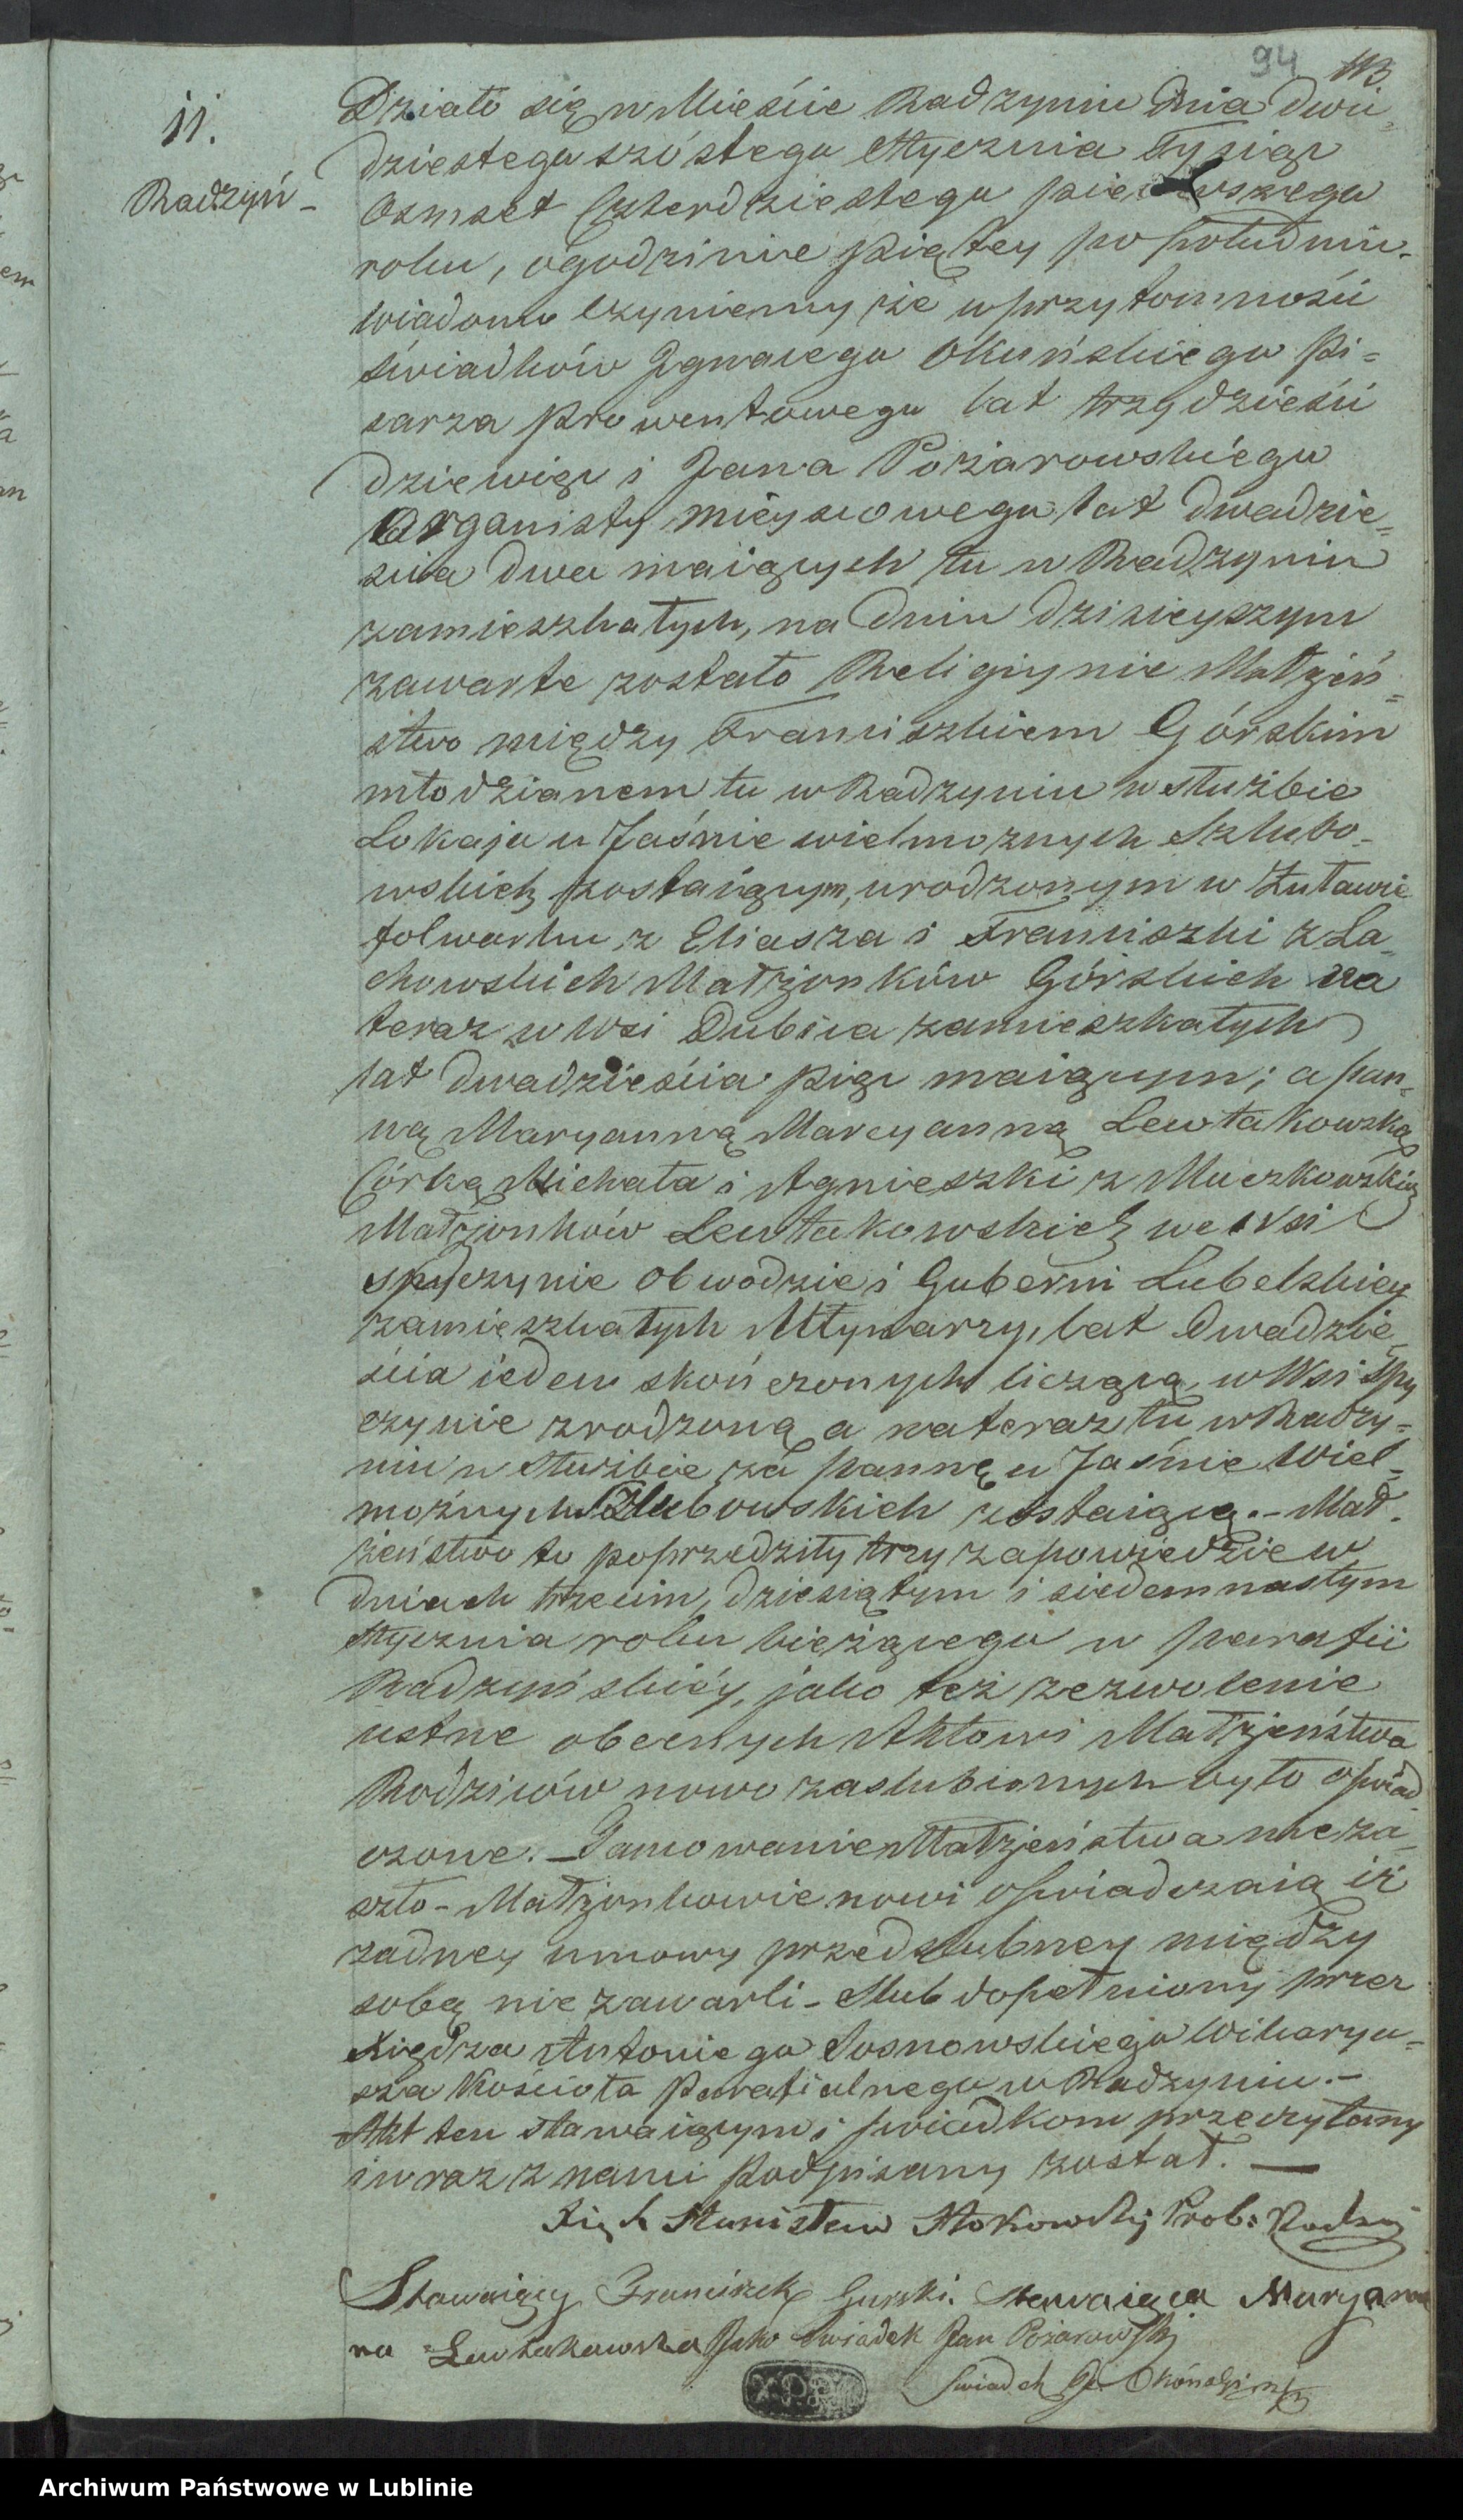 94 113
11.
Radzyń -
Działo się w Mieście Radzyniu Dnia dwu
dziestego szóstego Stycznia Tysiąc
Osmset Czterdziestego pierwszego
roku, o godzinie piątey po południu.
Wiadomo czyniemy że w przytomności
świadków Ignacego Okuńskiego Pi=
sarza prowentowego lat trzydzieści
dziewięć i Jana Pożarowskiego
Organisty mieyscowego lat dwadzie=
scia dwa maiących tu w Radzyniu
zamieszkałych, na Dniu dzisieyszym
zawarte zostało Religiynie Małżeń=
stwo między Franciszkiem Górskim
młodzianem tu w Radzyniu w służbie
Lokaja u Jaśnie wielmożnych Szlubo=
wskich zostaiącym, urodzonym w Żuławie
folwarku z Eliasza i Franciszki z La=
chowskich Małżonków Górskich na
teraz w Wsi Dubica zamieszkałych
lat dwadzieścia pięć maiącym; a pan=
ną Maryanną Marcyanną Lewtakowską
Córką Michała i Agnieszki z Muczkowskich
Małżonków Lewtakowskich we Wsi
Spyczynie Obwodzie i Guberni Lubelskiey
zamieszkałych Młynarzy, lat dwadzie=
ścia ieden skończonych liczącą, w Wsi Spy
czynie zrodzoną a nateraz tu w Radzy=
niu w służbie za pannę u Jaśnie Wiel=
możnych Szlubowskich zostaiącą. - Mał=
żeństwo to poprzedziły trzy zapowiedzie w
dniach trzecim, dziesiątym i siedemnastym
Stycznia roku bieżącego w parafii
Radzyńskiéy, jako też zezwolenie
ustne obecnych Aktowi Małżeństwa
Rodziców nowo zaslubionych było oświad
czone. - Tamowanie Małżeństwa nieza=
szło - Małżonkowie nowi oświadczaią iż
żadney umowy przedslubney między
sobą nie zawarli - Slub dopełniony przez
Xiędza Antoniego Sosnowskiego Wikaryu=
sza Kościoła Parafialnego w Radzyniu. -
Akt ten stawaiącym i świadkom przeczytany
i wraz z nami podpisany został. —
Xiądz Stanisław Stokowski Prob: Radzyń
Stawaiący Franciszek Gurski. Stawaiąca Maryan
na Lewtakowska Jako Swiadek Jan Pożarowski
Swiadek Okóński mp
Archiwum Państwowe w Lublinie